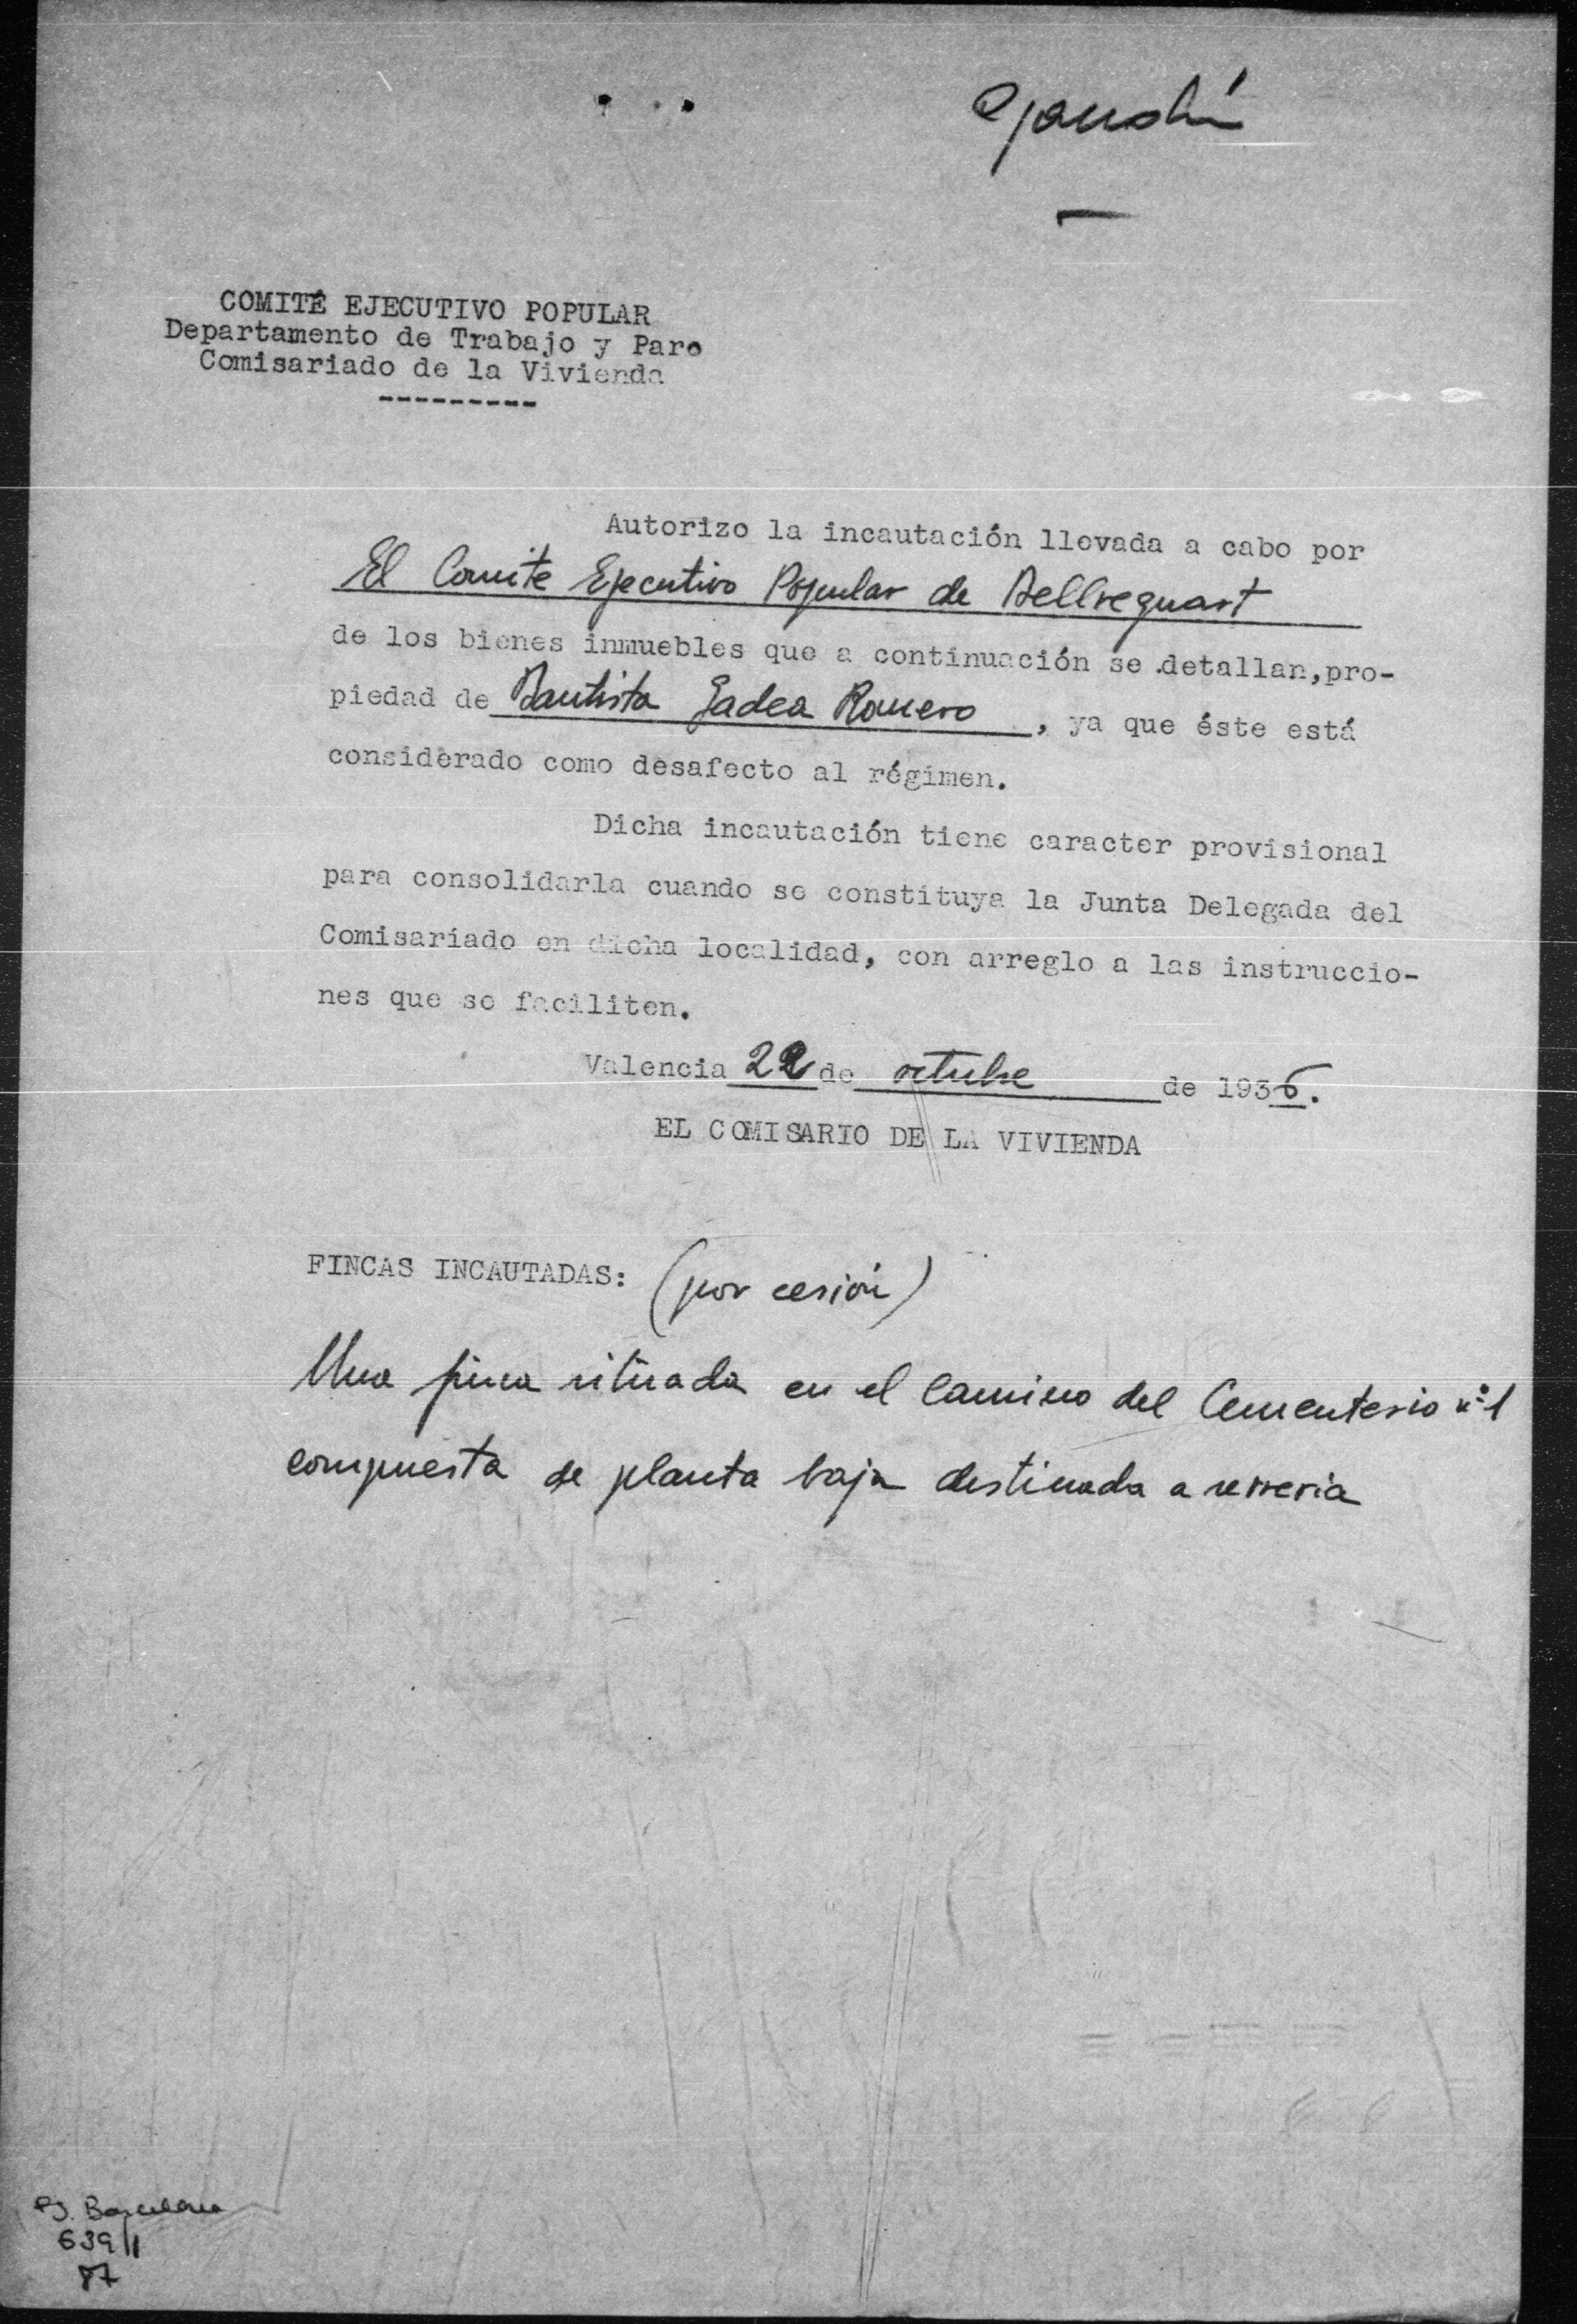 COMITÉ EJECUTIVO POPULAR
Departamento de Trabajo y Paro
Comisariado de la Vivienda
---------
Autorizo la incautación llevada a cabo por
El Comite Ejecutivo Popular de Bellreguart
de los bienes inmuebles que a continuación se .detallan,pro-
piedad de Bautista Gadea Romero, ya que éste está
considerado como desafecto al régimen.
Dicha incautación tiene caracter provisional
para consolidarla cuando se constituya la Junta Delegada del
Comisariado en dicha localidad, con arreglo a las instruccio-
nes que se faciliten.
Valencia 22 de octubre de 1936.
EL COMISARIO DE LA VIVIENDA
FINCAS INCAUTADAS: (por cesión)
Una finca situada en el camino del Cementerio nº 1
compuesta de planta baja destinada a serreria
PS. Barcelona
639/1
87